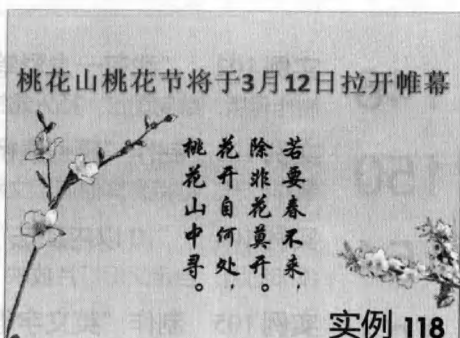 桃花山桃花节将于3月12日拉开帷幕
若要春不来，
除非花莫开。
花开自何处，
桃花山中寻。
实例 118